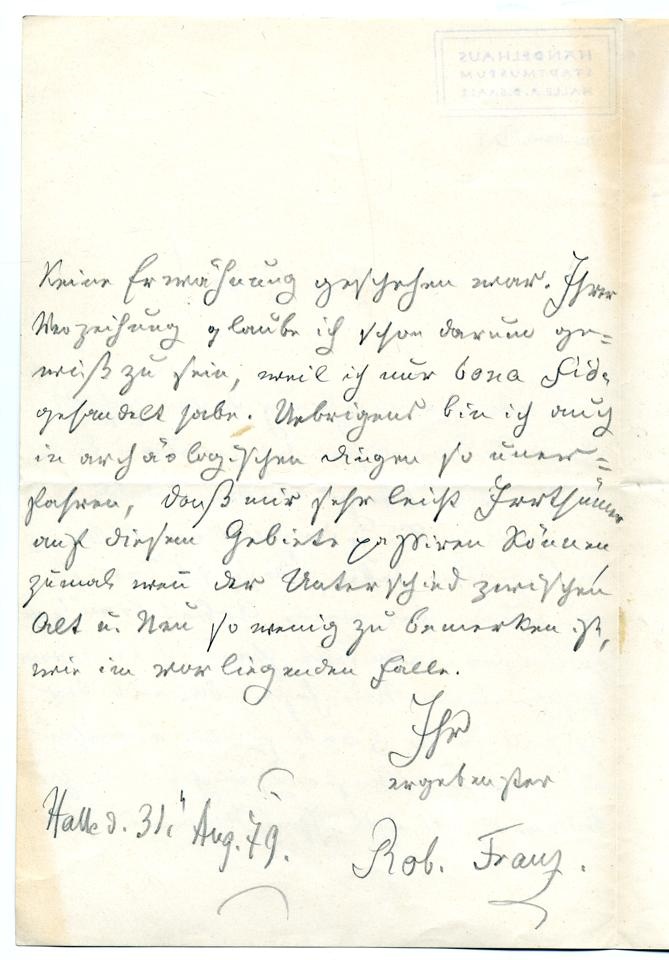 HÄNDELHAUS
STADTMUSEUM
HALLE A. D. SAALE
keine Erwähnung geschehen war. Ihrer
Verzeihung glaube ich schon darum ge=
wiß zu sein, weil ich nur bona fide
gehandelt habe. Uebrigens bin ich auch
in archäologischen Dingen so uner=
fahren, daß mir sehr leicht Irrthümer
auf diesem Gebiete passiren können
zumal weñ der Unterschied zwischen
Alt u. Neu so wenig zu bemerken ist,
wie im vorliegenden Falle.
Ihr
ergebenster
Halle d. 31. Aug. 79.
Rob. Franz.